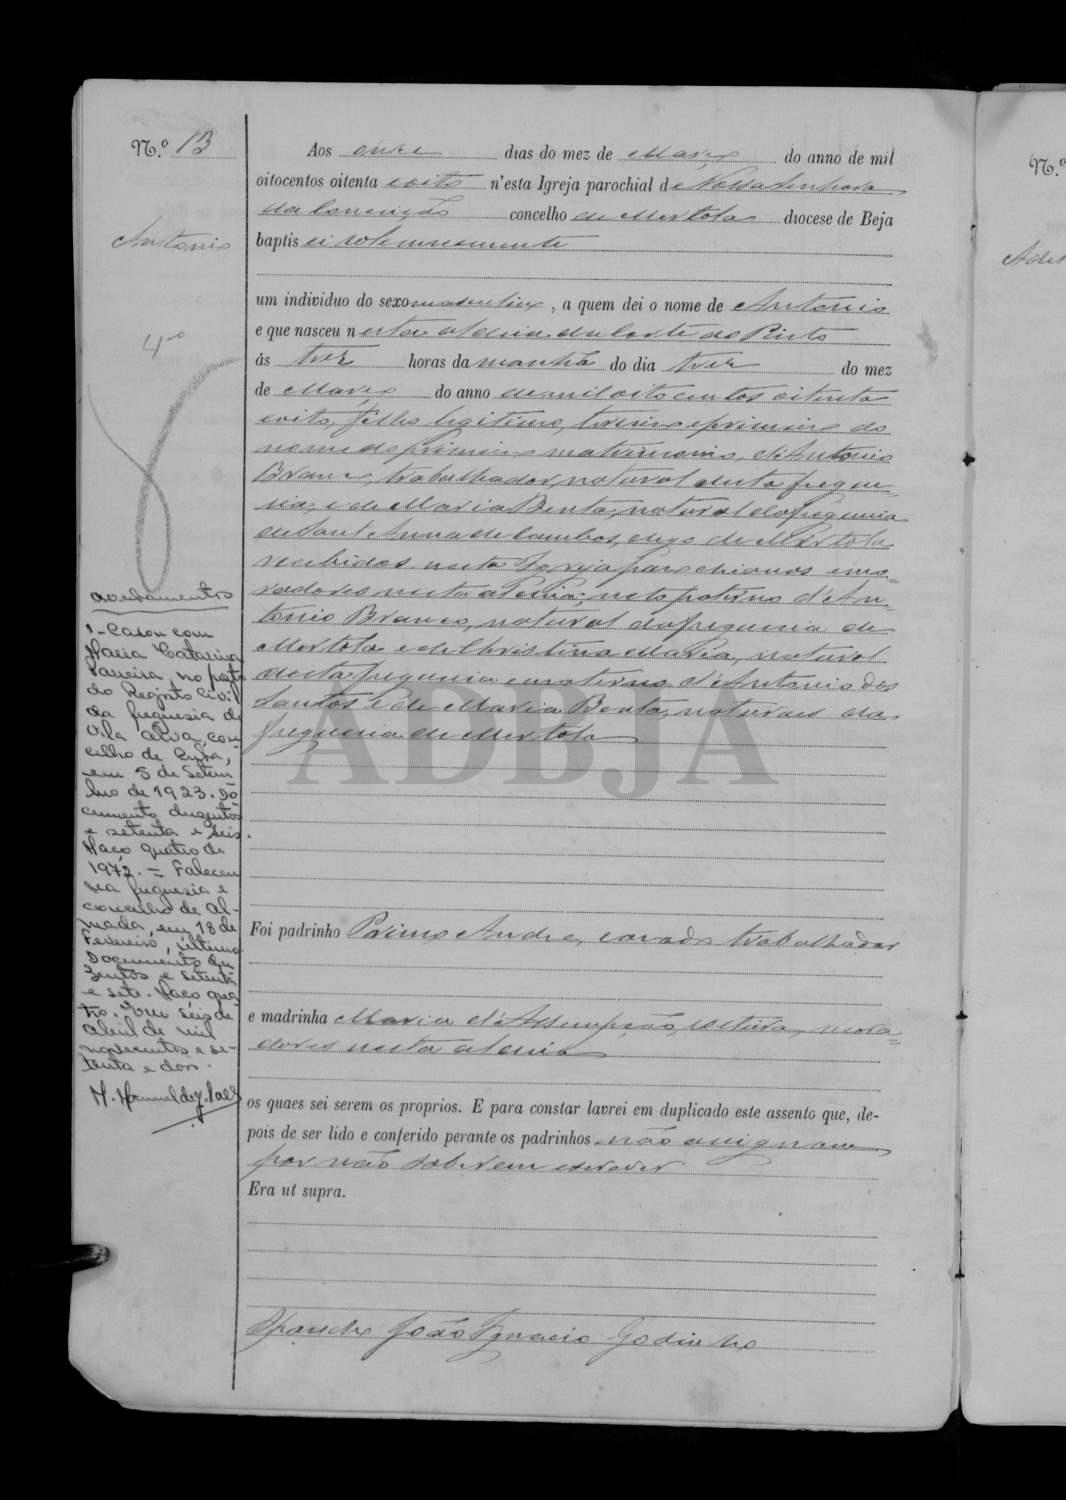 N.º 13
Antonio
4º
Aos onze dias do mez de Março do anno de mil
oitocentos oitenta e oito n'esta Igreja parochial de Nossa Senhora
da Conceição concelho de Mertola diocese de Beja
baptisei solemnemente
um individuo do sexo masculino, a quem dei o nome de Antonio
e que nasceu n esta aldeia da Corte do Pinto
ás tres horas da manhã do dia tres do mez
de Março do anno de mil oito centos oitenta
e oito, filho legitimo, terceiro e primeiro do
nome do primeiro matrimonio, d'Antonio
Branco, trabalhador, natural desta fregue-
sia, e de Maria Benta, natural da freguesia
de Sant Anna de Cambas, digo de Mertola
recebidos nesta Igreja parochianos e mo=
radores nesta aldeia; neto paterno d'An-
tonio Branco, natural da freguesia de
Mertola e de Christina Maria, natural
desta freguesia e materno d'Antonio dos
Santos e de Maria Benta, naturaes da
freguesia de Mertola
Foi padrinho Primo Andre, casado trabalhador
e madrinha Maria d'Assumpção, solteira, mora=
dores nesta aldeia
os quaes sei serem os proprios. E para constar lavrei em duplicado este assento que, de-
pois de ser lido e conferido perante os padrinhos não assignam
por não saberem escrever
Era ut supra.
O parocho João Ignacio Godinho
averbamentos
1 - Casou com
Maria Catarina
Parreira, no posto
do Registo Civil
da freguesia de
Vila Alva, con-
celho de Cuba,
em 5 de Setem-
bro de 1923. Do-
cumento duzentos
e setenta e seis.
Maço quatro de
1972. = Faleceu
na freguesia e
concelho de Al-
mada, em 18 de
Fevereiro, último
Documento du-
zentos e setenta
e sete. Maço qua-
tro. Em seis de
Abril de mil
novecentos e se-
tenta e dois.
N.º
ADBJA